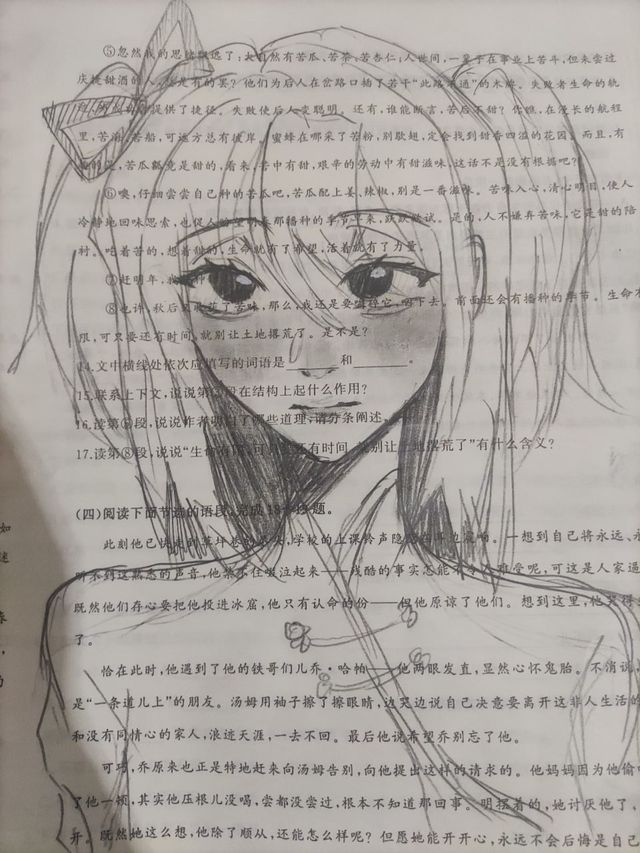 ⑤忽然我的思绪飘远了:大自然有苦瓜、苦茶、苦杏仁;人世间,一辈子在事业上苦斗,但未尝过
庆捷甜酒的人,就是有的罢?他们为后人在岔路口插了若干“此路不通”的木牌。失败者生命的轨
提供了捷径。失败使后人变聪明。还有,谁能断言,苦后不甜?你瞧,在漫长的航程
里,苦海,苦船,可远方总有彼岸。蜜蜂在哪采了苦粉,别歇翅,定会找到甜香四溢的花园。而且,有
苦瓜瓤竟是甜的,看来,苦中有甜,艰辛的劳动中有甜滋味,这话不是没有根据吧?
⑥噢,仔细尝尝自己种的苦瓜吧,苦瓜配上姜、辣椒,别是一番滋味。苦味入心,清心明目,使人
冷静地回味思索,也促人盼望明春那播种的季节早来,跃跃欲试。是的,人不谦弃苦味,它是甜的陪
衬。吃着苦的,想着甜的,生命就有了希望,活着就有了力量。
⑦赶明年,我
⑧也许,秋后又收获了苦味,那么,我还是要嚼碎它,咽下去。前面还会有播种的季节。生命有
限,可只要还有时间,就别让土地撂荒了。是不是?
14.文中横线处依次应填写的词语是 和 。
15.联系上下文,说说第 段在结构上起什么作用?
16.读第⑤段,说说作者明白了哪些道理,请分条阐述。
17.读第⑧段,说说“生命有限,可只要还有时间,就别让土地撂荒了”有什么含义?
(四)阅读下面节选的语段,完成18 题。
此刻他已快走到草坪巷的尽头,学校的上课铃声隐隐在耳边震响。一想到自己将永远、永
听不到这熟悉的声音,他禁不住啜泣起来——残酷的事实怎能不令人难受呢,可这是人家逼
既然他们存心要把他投进冰窟,他只有认命的份——但他原谅了他们。想到这里,他哭得
了。
恰在此时,他遇到了他的铁哥们儿乔·哈帕——他两眼发直,显然心怀鬼胎。不消说,
是“一条道儿上”的朋友。汤姆用袖子擦了擦眼睛,边哭边说自己决意要离开这非人生活的
和没有同情心的家人,浪迹天涯,一去不回。最后他说希望乔别忘了他。
可巧,乔原来也正是特地赶来向汤姆告别,向他提出这样的请求的。他妈妈因为他偷
了他一顿,其实他压根儿没喝,尝都没尝过,根本不知道那回事。明摆着的,她讨厌他了,
开。既然她这么想,他除了顺从,还能怎么样呢?但愿她能开开心,永远不会后悔是自己